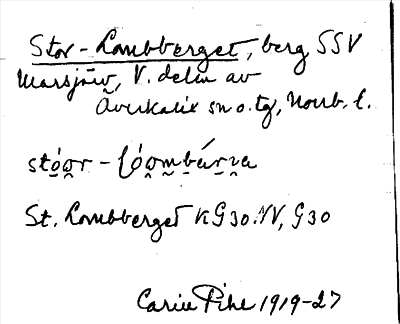 Stor-Lombberget, berg SSV
Marsjärv, V. delen av
Överkalix sn o. tg, Norrb. l.
St. Lombberget KG30 NV, G30
Carin Pihl 1919-27